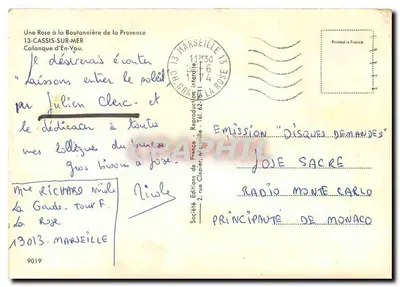 Une Rose à la Boutonnière de la Provence
13-CASSIS-SUR-MER
Calanque d'En-Vau.
Je désirerais écouter
"Laissons entrer le soleil
par Julien Clerc - et
le dédicacer à toutes
mes collègues du bureau
gros bisous à José.
Nicole
Mme RICHARD Nicole
La Gaude. Tour F.
La Rose
13013. MARSEILLE
9019
Société Editions de France - Reproduction interdite
2, rue Clapier, Marseille - Tél. 62-
13 MARSEILLE 13
LA ROSE
Printed in France
EMISSION "DISQUES DEMANDES"
JOSE SACRE
RADIO MONTE CARLO
PRINCIPAUTE DE MONACO